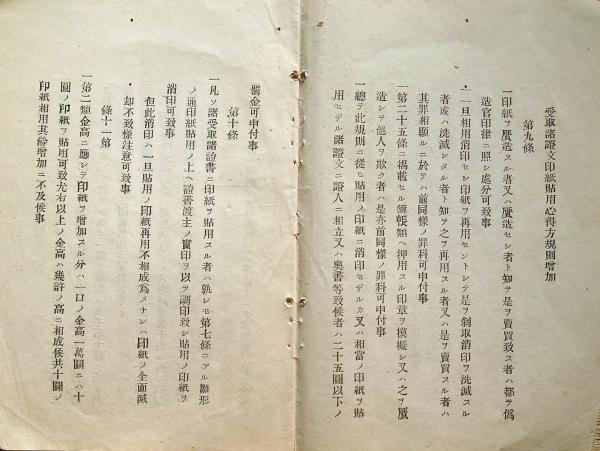 受取諸證文印紙貼用心得方規則増加
第九條
一印紙ヲ贋造スル者又ハ贋造セシ者ト知テ是ヲ賣買致ス者ハ都テ僞
造官印律ニ照シ處分可致事
一一旦相用消印セシ印紙ヲ再用セントシテ是ヲ剝取消印ヲ洗滅スル
者或ハ洗滅シタル者ト知テ之ヲ再用スル者又ハ是ヲ賣買スル者ハ
其罪相顯ルニ於テハ前同樣ノ罪科可申付事
一第二十五條ニ揭載セル簿帳類ヘ押用スル印章ヲ摸擬シ又ハ之ヲ贋
造シテ他人ヲ欺ク者ハ是亦前同樣ノ罪科可申付事
一總テ此規則ニ從ヒ貼用ノ印紙ニ消印セデルカ又ハ相當ノ印紙ヲ貼
用セデル諸證文ニ證人ニ相立又ハ奧書等致候者ハ二十五圓以下ノ
罰金可申付事
第十條
一凡ソ諸受取諸證書ニ印紙ヲ貼用スル者ハ孰レモ第七條ニアル雛形
ノ通印紙貼用ノ上ヘ證書渡主ノ實印ヲ以テ調印致シ貼用ノ印紙ヲ
消印可致事
但此消印ハ一旦貼用ノ印紙再用不相成爲メナレハ印紙ノ全面滅
却不致樣注意可致事
條十一第
一第二類金高ニ應シテ印紙ヲ增加スル分ハ一口ノ金高一萬圓ニハ十
圓ノ印紙ヲ貼用可致尤右以上ノ金高ハ幾許ノ高ニ相成候共十圓ノ
印紙相用其餘增加ニ不及候事